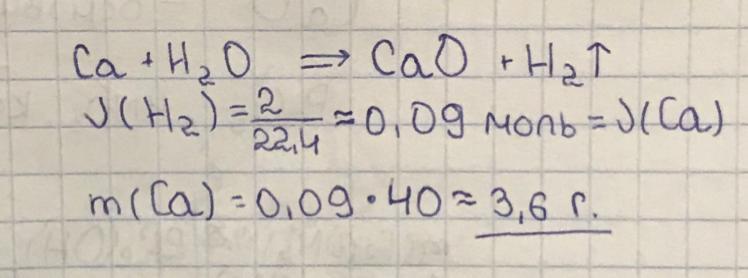 Ca + H₂O ⇒ CaO + H₂↑
ν(H₂) = 2/22,4 ≈ 0,09 моль = ν(Ca)
m(Ca) = 0,09 · 40 ≈ 3,6 г.